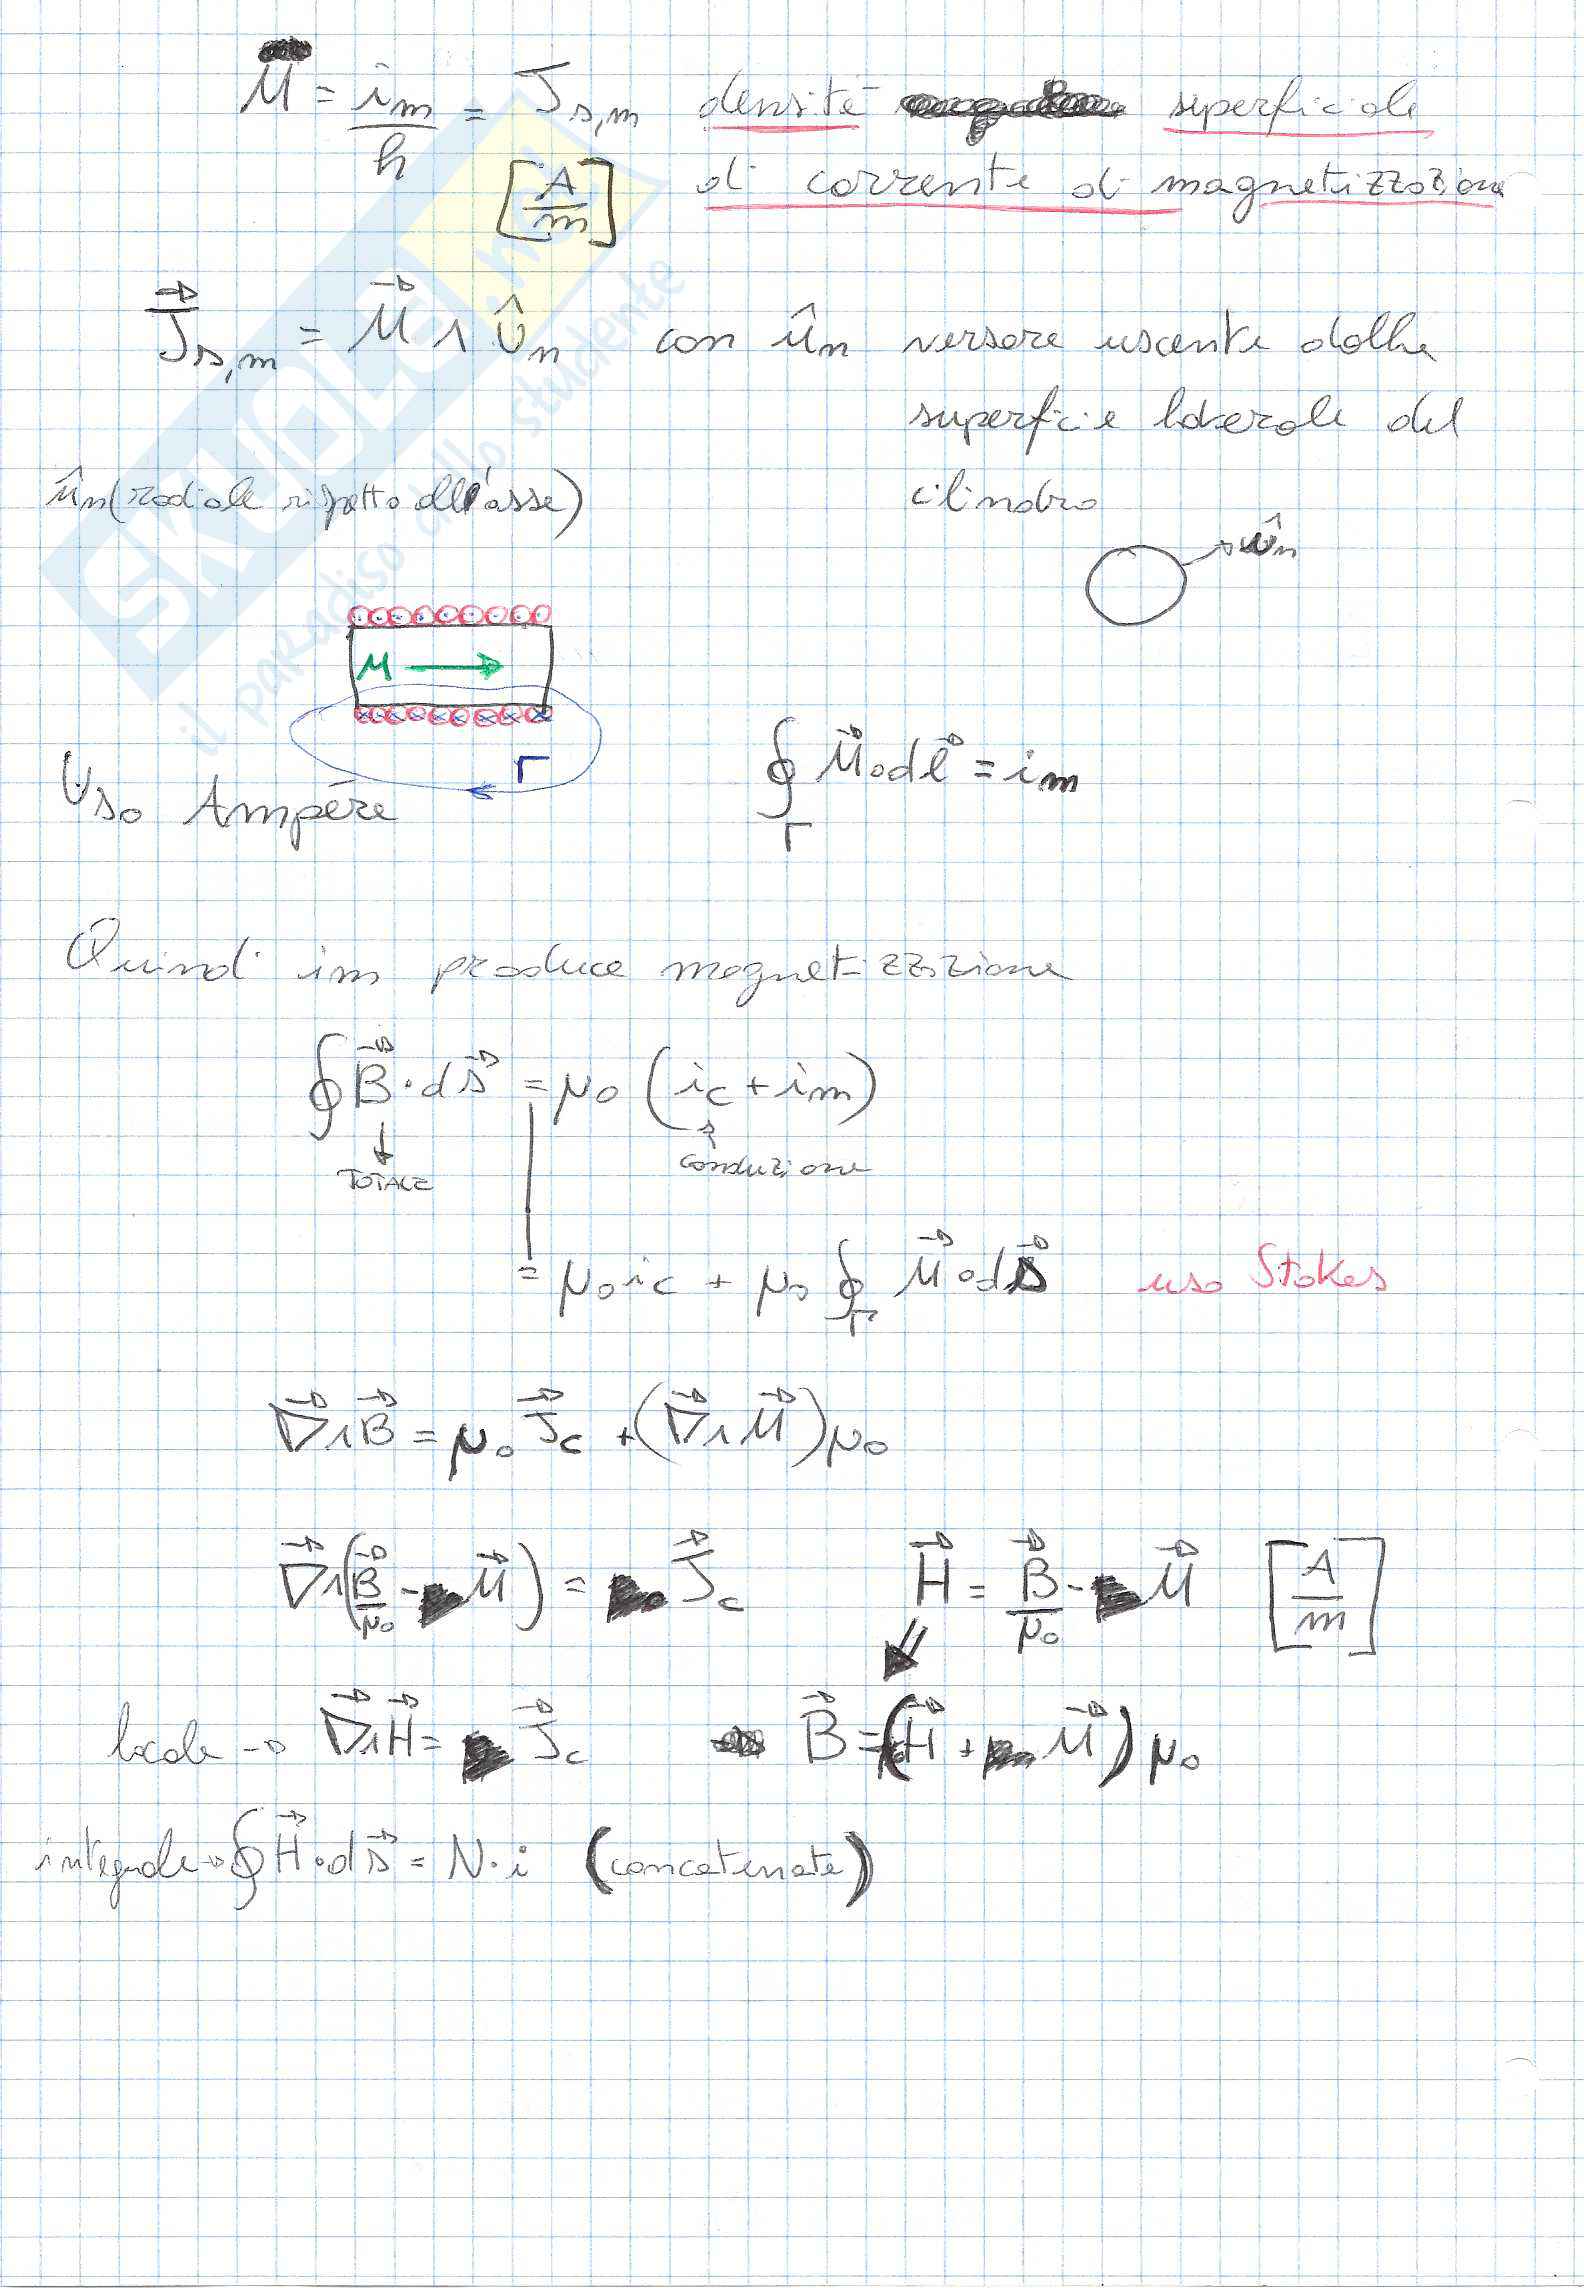 M = i_m / h = J_{s,m} densità superficiale
[A/m] di corrente di magnetizzazione
J⃗_{s,m} = M⃗ ∧ û_n con û_n versore uscente dalla
superficie laterale del
û_n (radiale rispetto all'asse) cilindro
û_n
M
Γ
Uso Ampère ∮_Γ M⃗ ∘ dℓ⃗ = i_m
Quindi im produce magnetizzazione
∮ B⃗ · ds⃗ = μ₀ (i_c + i_m)
TOTALE conduzione
= μ₀ i_c + μ₀ ∮_Γ M⃗ ∘ ds⃗ uso Stokes
∇⃗ ∧ B⃗ = μ₀ J⃗_c + (∇⃗ ∧ M⃗) μ₀
∇⃗ ∧ (B⃗/μ₀ - M⃗) = J⃗_c H⃗ = B⃗/μ₀ - M⃗ [A/m]
locale → ∇⃗ ∧ H⃗ = J⃗_c B⃗ = (H⃗ + M⃗) μ₀
integrale → ∮ H⃗ · ds⃗ = N · i (concatenate)
SKUOLA.net
il paradiso dello studente